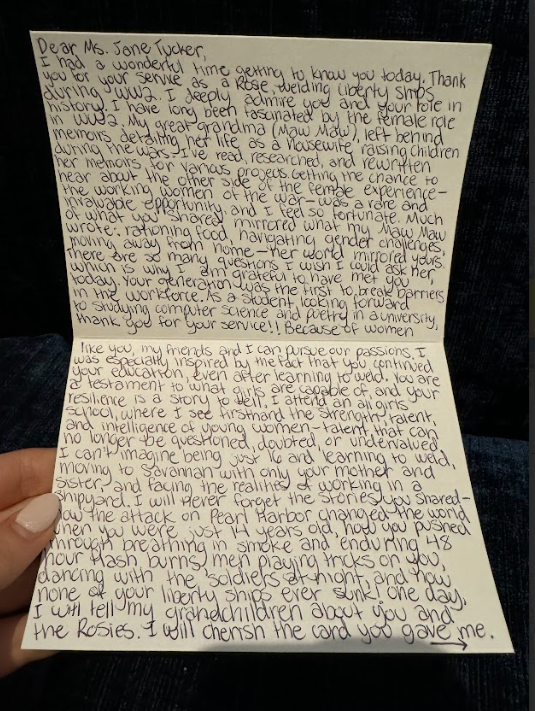 Dear Ms. Jane Tucker,
I had a wonderful time getting to know you today. Thank
you for your service as a Rosie, welding liberty ships
during WW2. I deeply admire you and your role in
history. I have long been fascinated by the female role
in WW2. My great grandma (Maw Maw), left behind
memoirs detailing her life as a housewife, raising children
during the wars. I've read, researched, and rewritten
her memoirs for various projects. Getting the chance to
hear about the other side of the female experience-
the working women of the war- was a rare and
invaluable opportunity, and I feel so fortunate. Much
of what you shared mirrored what my Maw Maw
wrote: rationing food, navigating gender challenges,
moving away from home - her world mirrored yours.
There are so many questions I wish I could ask her,
which is why I am grateful to have met you
today. Your generation was the first to break barriers
in the workforce. As a student, looking forward
to studying computer science and poetry in a university,
thank you for your service!! Because of women
like you, my friends and I can pursue our passions. I
was especially inspired by the fact that you continued
your education, even after learning to weld. You are
a testament to what girls are capable of, and your
resilience is a story to tell. I attend an all girls
school, where I see firsthand the strength, talent,
and intelligence of young women-talent that can
no longer be questioned, doubted, or undervalued.
I can't imagine being just 16 and learning to weld,
moving to Savannah with only your mother and
sister, and facing the realities of working in a
shipyard. I will never forget the stories you shared-
how the attack on Pearl Harbor changed the world
when you were just 14 years old, how you pushed
through breathing in smoke and enduring 48
hour flash burns, men playing tricks on you,
dancing with the soldiers at night, and how
none of your liberty ships ever sunk! One day,
I will tell my grandchildren about you and
the Rosies. I will cherish the card you gave me.